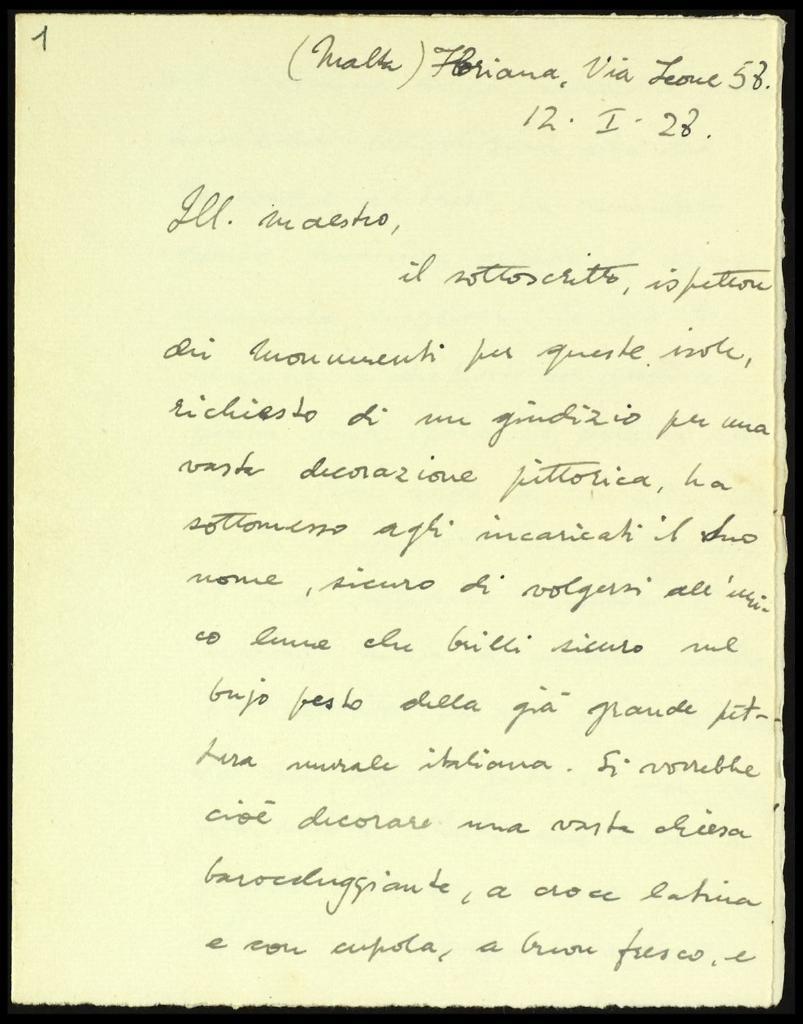 1
(Malta) Floriana, Via Leone 58.
12. I. 28.
Ill. maestro,
il sottoscritto, ispettore
dei monumenti per queste isole,
richiesto di un giudizio per una
vasta decorazione pittorica, ha
sottomesso agli incaricati il Suo
nome, sicuro di volgersi all'uni-
co lume che brilli sicuro nel
bujo pesto della già grande pit-
tura murale italiana. Si vorrebbe
cioè decorare una vasta chiesa
baroccheggiante, a croce latina
e con cupola, a buon fresco, e